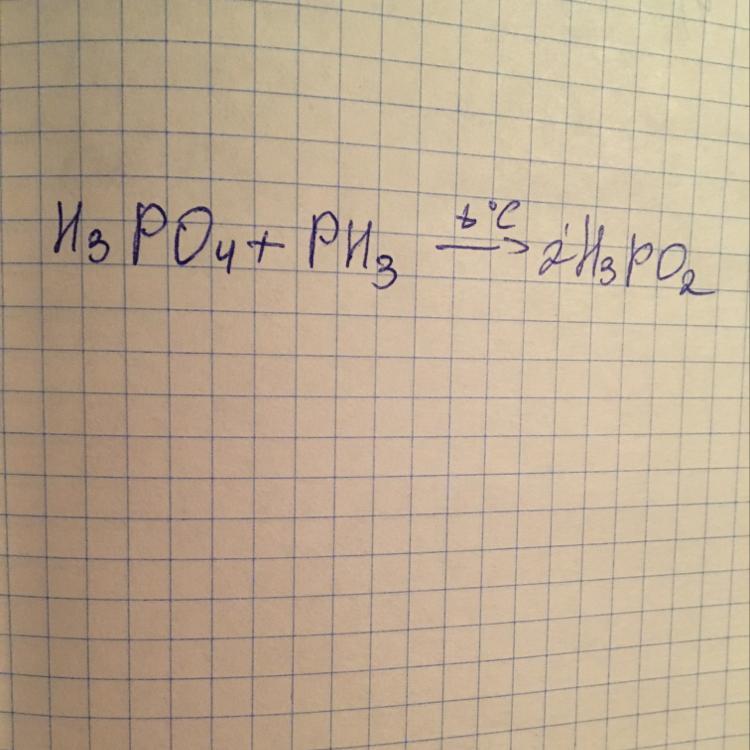 H₃PO₄ + PH₃ →(t°C) 2H₃PO₂